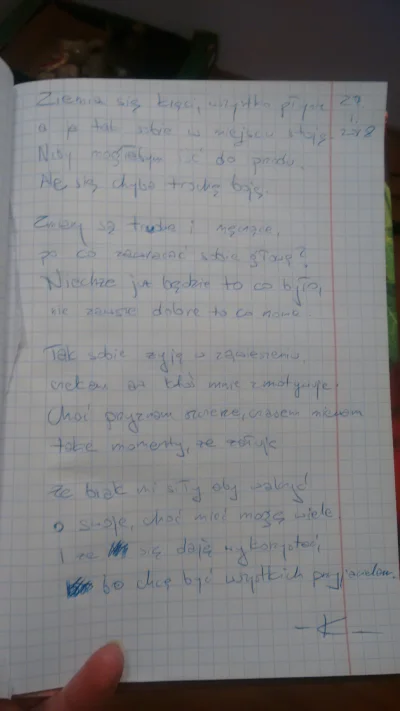 Ziemia się kręci, wszystko płynie 29
a ja tak sobie w miejscu stoję. 1
Niby mogłabym iść do przodu, 2018
Ale się chyba trochę boję.
Zmiany są trudne i męczące,
po co zawracać sobie głowę?
Niechże już będzie to co było,
nie zawsze dobre to co nowe.
Tak sobie żyję w zawieszeniu,
czekam aż ktoś mnie zmotywuje.
Choć przyznam szczerze, czasem miewam
takie momenty, że żałuję
że brak mi siły aby walczyć
o swoje, choć mieć mogę wiele.
I że się daję wykorzystać,
bo chcę być wszystkich przyjacielem.
- K -